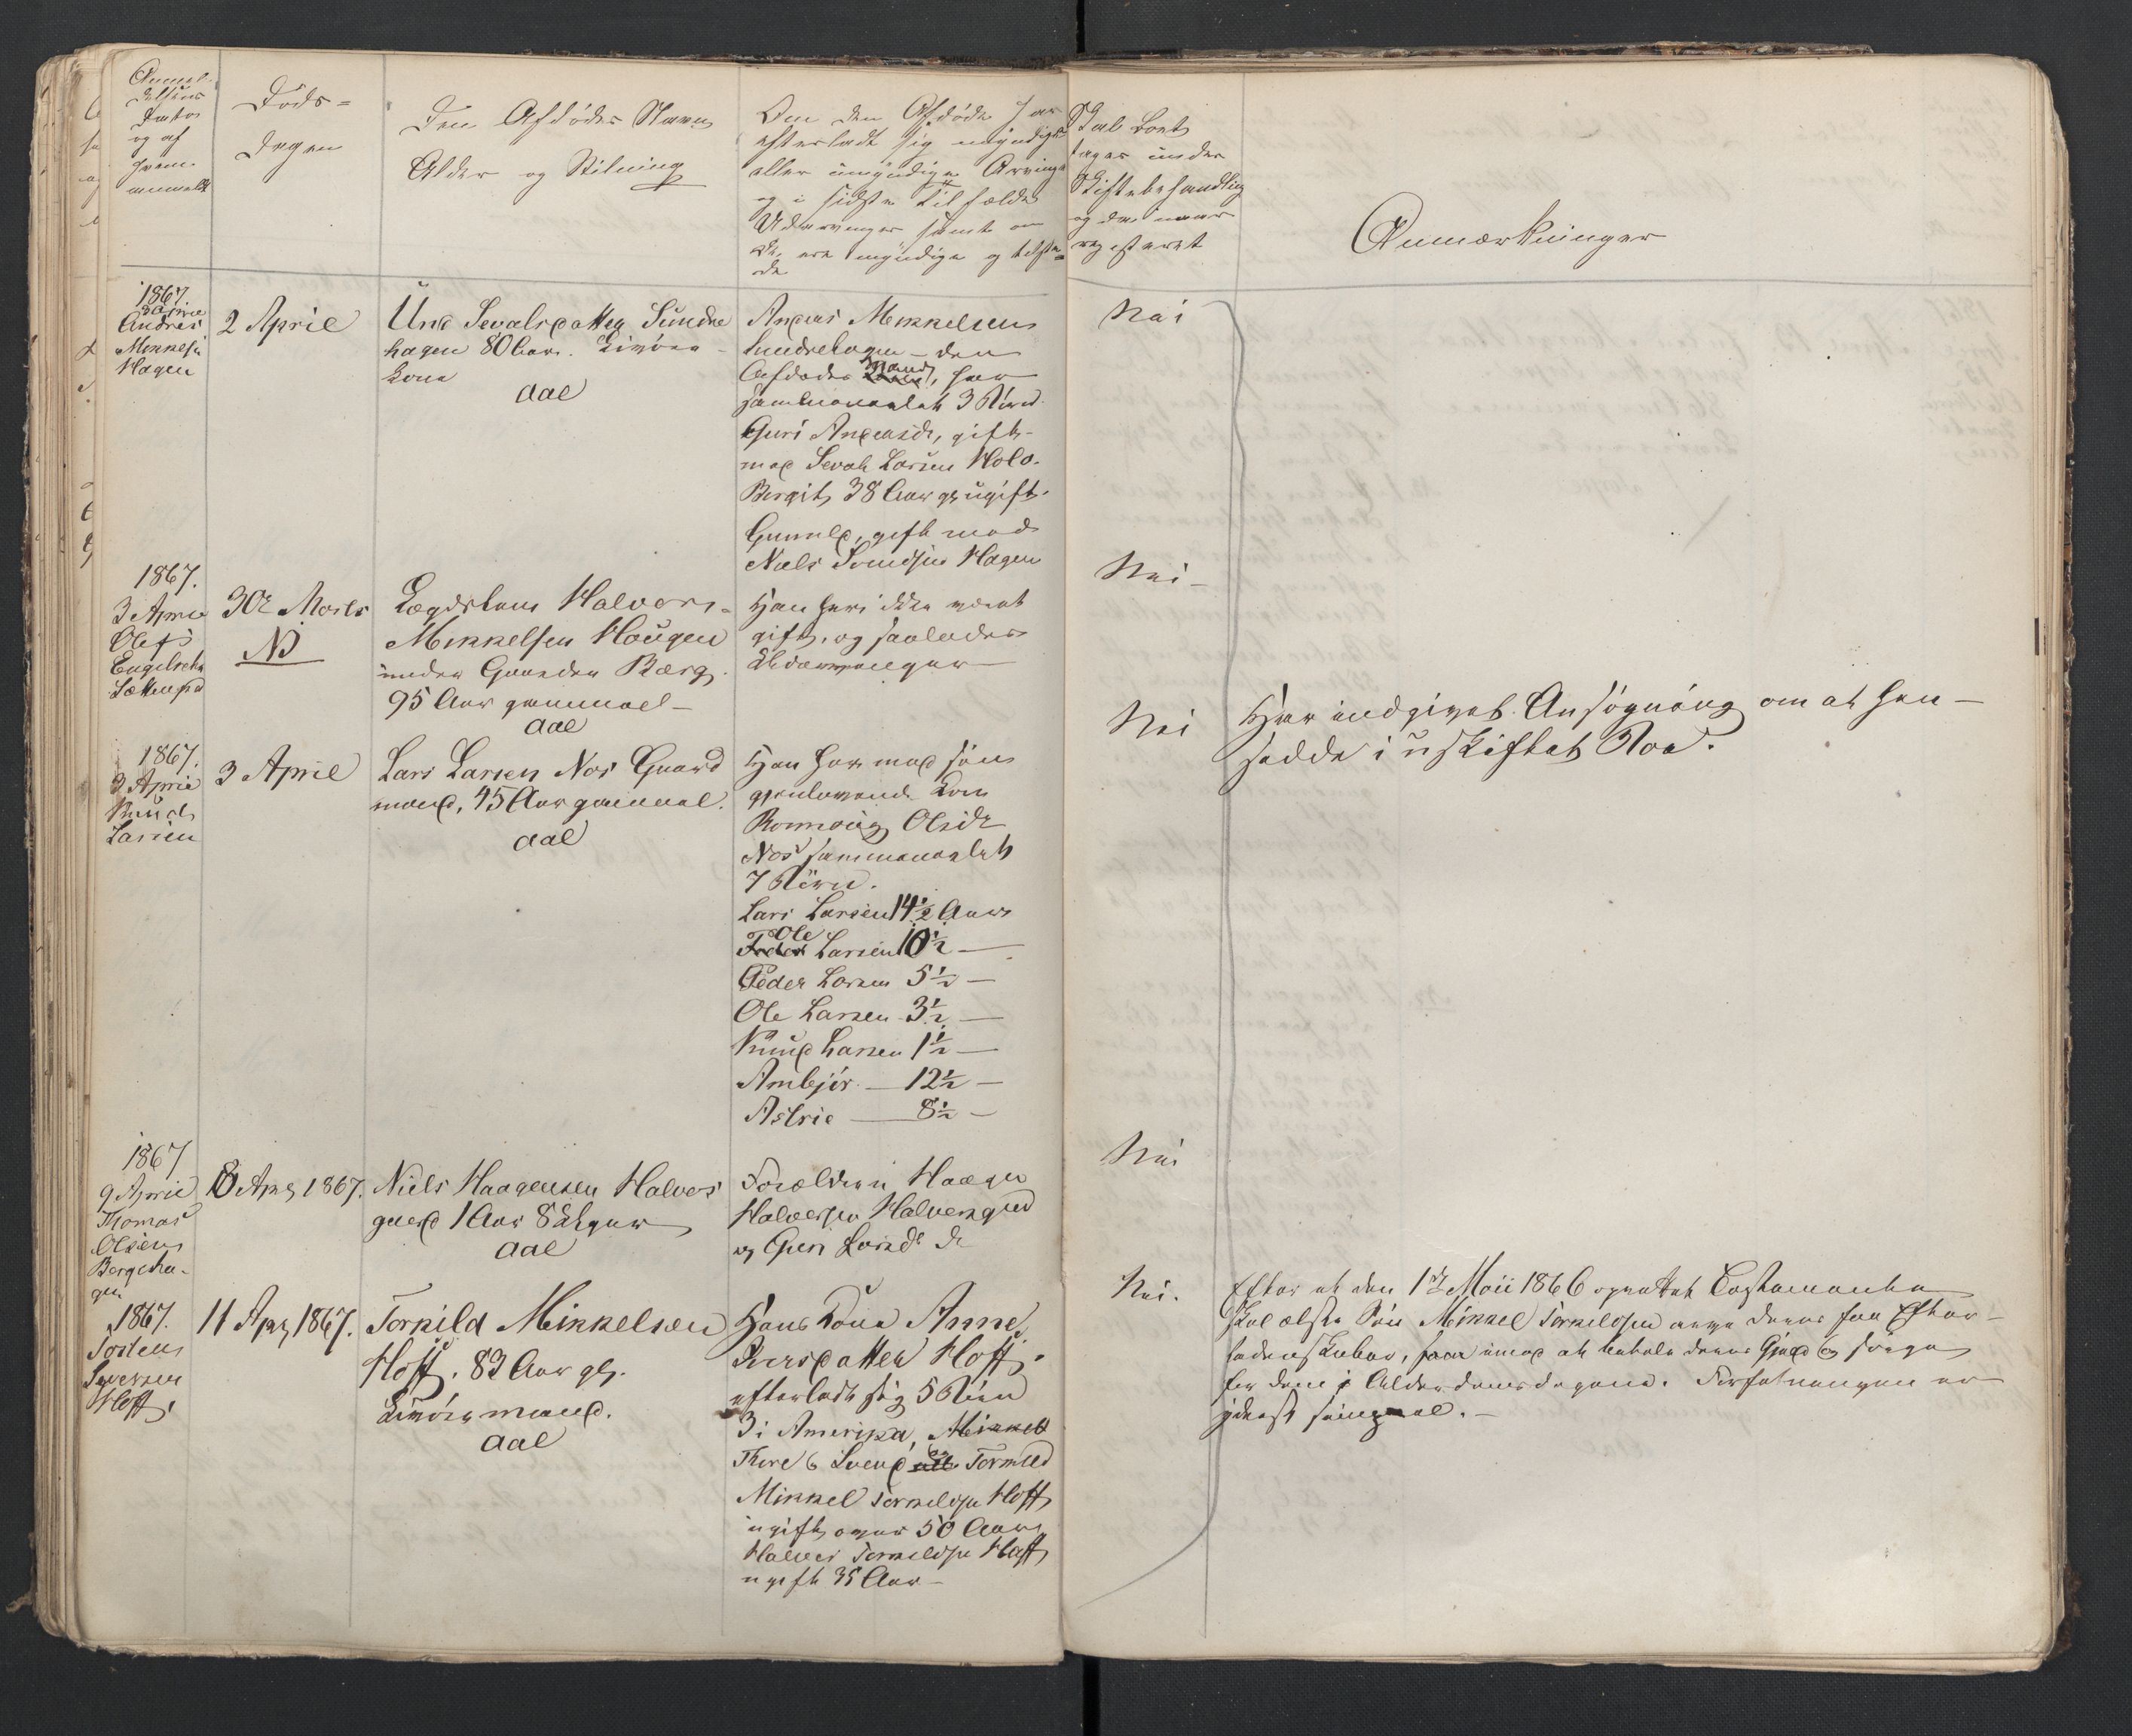 Anmel-
delsens
Dato
og af
hvem
anmeldt
Døds-
dagen
Den Afdødes Navn
Alder og Stilling
Om den Afdøde har
efterladt sig myndige
eller umyndige Arvinge
og i sidste Tilfælde
Udarvinger samt om
de ere myndige og tilste-
de
Skal Boet
tages under
Skiftebehandling
og da naar
registeret
Anmærkninger
1867.
3 April
Andres
Mikkels
Hagen
2 April
Und Sevalsdatter Sundre
hagen 80 Aar. Livøre
Kone
Aal
Andreas Mikkelsen
Sundrehagen - den
Afdødes Mand, har
sammenavlet 3 Børn
Guri Andreasdr, gift
med Sevat Larsen Holo.
Bergit, 38 Aar gl ugift.
Gunild, gift med
Niels Svendsen Hagen
Nei
1867.
3 April
Ole
Engebreths
30te Marts
ND
Lægdslem Halvor
Mikkelsen Haugen
under Gaarden Berg.
95 Aar gammel -
Aal
Han har ikke været
gift, og saaledes
Udarvinger
Nei -
1867.
3 April
Knud
Larsen
3 April
Lars Larsen Nos Gaard
mand, 45 Aar gammel.
Aal
Han har med sin
gjenlevende Kone
Rønnoug Olsdr
Nos sammenavlet
7 Børn.
Lars Larsen 14½ Aar
Ole Larsen 10½ —
Peder Larsen 5½ —
Ole Larsen 3½ —
Knud Larsen 1½ —
Ambjør — 12½ —
Astrid — 8½ —
Nei
Har indgivet Ansøgning om at hen-
sidde i uskiftet Boe.
1867
9 April
Thomas
Olsen
Bergeha-
gen
8 Apr 1867.
Niels Haagensen Halvors
gaard 1 Aar 8 Uger
Aal
Forældren Haagen
Halvorsen Halvorsgard
og Guri Larsdr
Nei
1867.
Torsten
Syversen
Hoff.
11 Apr 1867.
Torkild Mikkelsen
Hoff. 83 Aar gl.
Livøremand.
Aal
Hans Kone Anne
Iversdatter Hoff.
efterladt sig 5 Børn
3 i Amerika, Mikkel
Thore & Svend og Tormod
Mikkel Torkildsen Hoff
ugift, over 50 Aar
Halvor Torkildsen Hoff
ugift 35 Aar -
Nei.
Efter et den 1ste Maii 1866 oprettet Testamente
skal ælste Søn Mikkel Torkildsen arve deres faa Efter-
ladenskaber, imod at betale deres Gjæld & sørge
for dem i Alderdomsdagene. Forfatningen er
yderst ringe. -